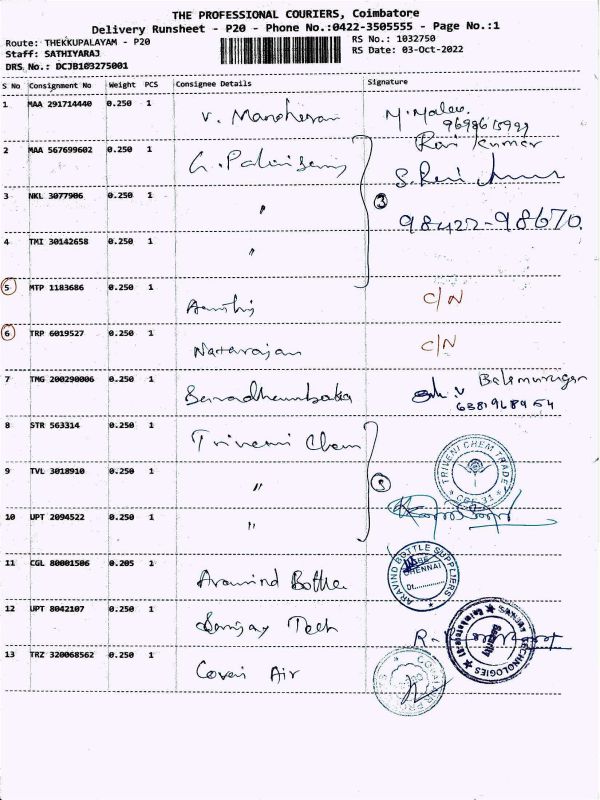 THE PROFESSIONAL COURIERS, Coimbatore
Delivery Runsheet - P20 - Phone No.:0422-3505555 - Page No.:1
Route: THEKKUPALAYAM - P20
RS No.: 1032750
Staff: SATHIYARAJ
RS Date: 03-Oct-2022
DRS No.: DCJB103275001
S No Consignment No Weight PCS Consignee Details Signature
1 MAA 291714440 0.250 1 V. Manoharan
2 MAA 567699602 0.250 1 Ravi Kumar
3 NKL 3077906 0.250 1 " 3
98422-98670.
4 TMI 30142658 0.250 1 "
5 MTP 1183686 0.250 1 C/N
6 TRP 6019527 0.250 1 Natarajan C/N
7 TMG 200290006 0.250 1 Balamurugan
8 STR 563314 0.250 1 Triveni Chem
TRIVENI CHEM TRADE
9 TVL 3018910 0.250 1 " 3
10 UPT 2094522 0.250 1 "
11 CGL 80001506 0.205 1 Aravind Bottle
ARAVIND BOTTLE SUPPLIERS
CHENNAI
12 UPT 8042107 0.250 1 Sanjay Tech
SANJAY TECHNOLOGIES
Security
13 TRZ 320068562 0.250 1 Covai Air